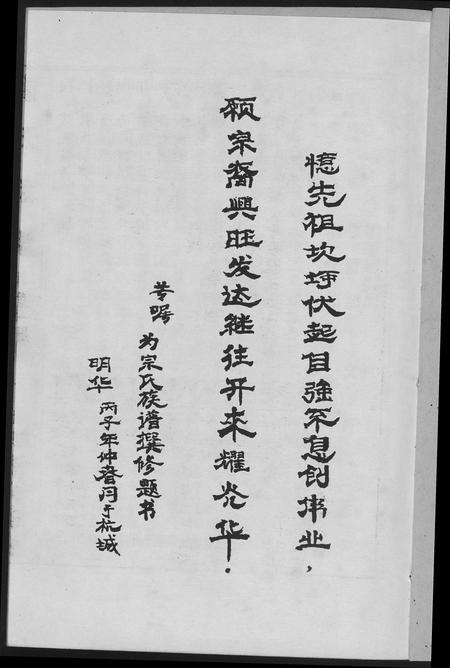 憶先祖坎坷伏起自強不息创伟业,
願宗裔興旺发达继往开来耀光华.
菩嘱 为宗氏族谱撰修题书
明华 丙子年仲春闰于杭城